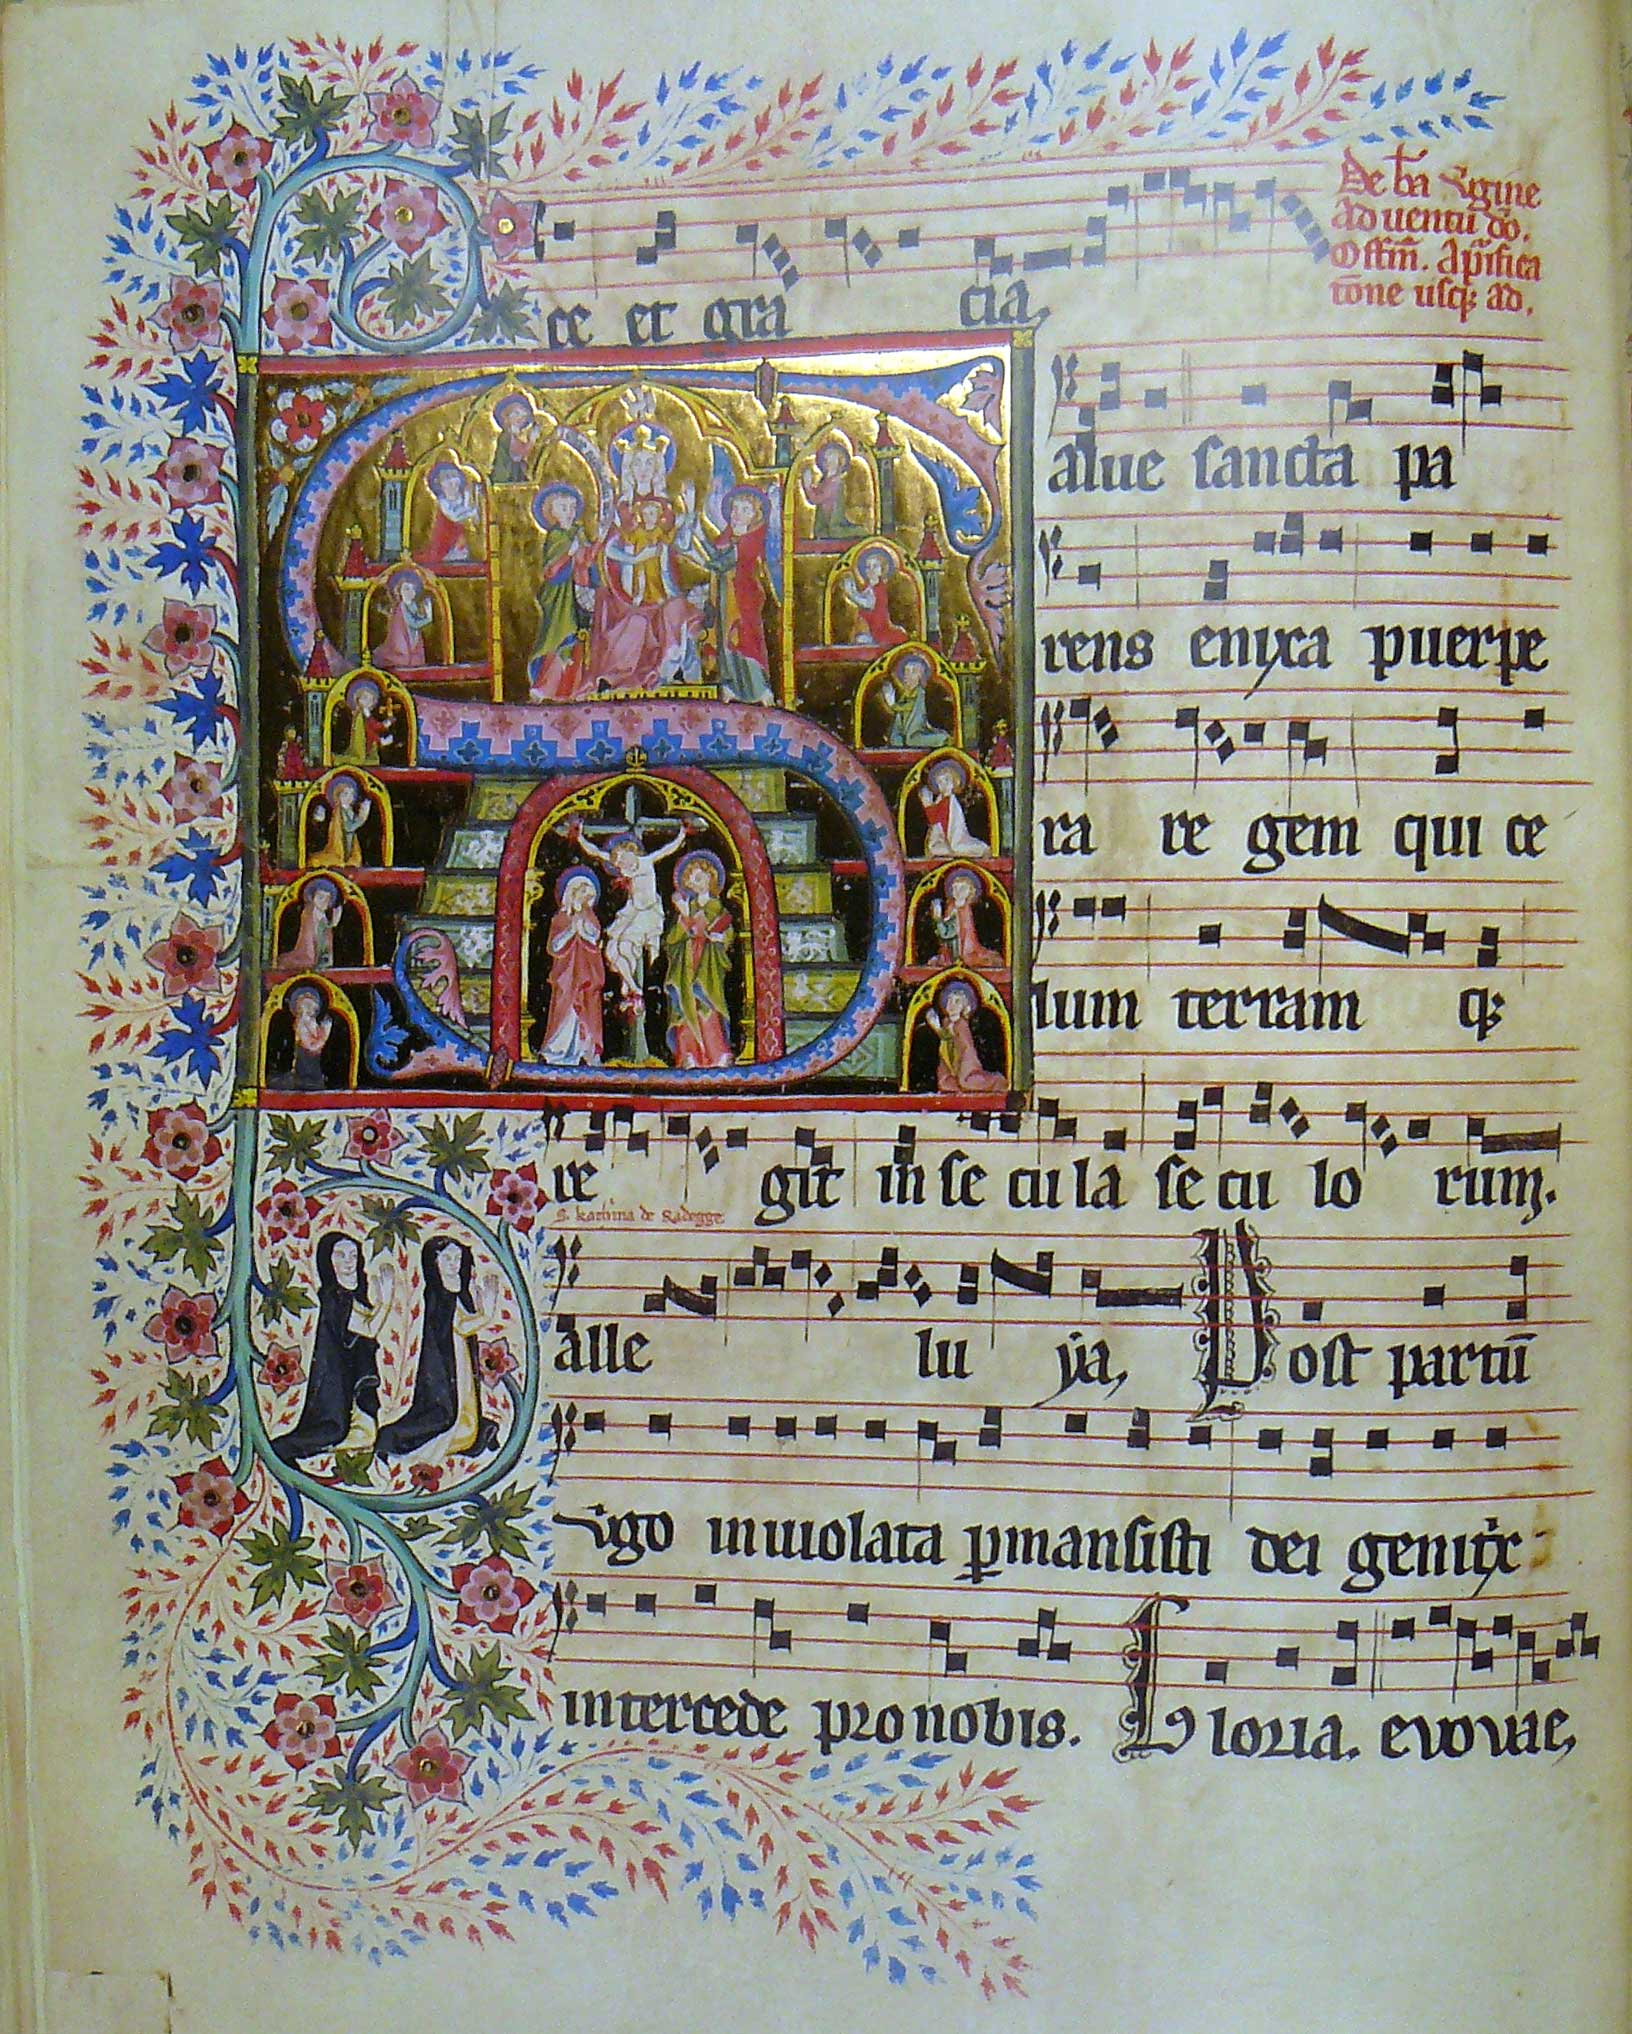 ce et gra cia,
De b̄a v̾gine
aduentu dō.
Offm̄. A p̄ifica
tōne usq̧ ad.
Salue sancta pa
rens enixa puerpe
ra re gem qui ce
lum terram q̧
re git in se cu la se cu lo rum.
S. kath̾ina de Radegge
alle lu ya, Post partū
v̾igo inuiolata ꝑmansisti dei genit̾x
intercede pro nobis. Gloria. evovae,